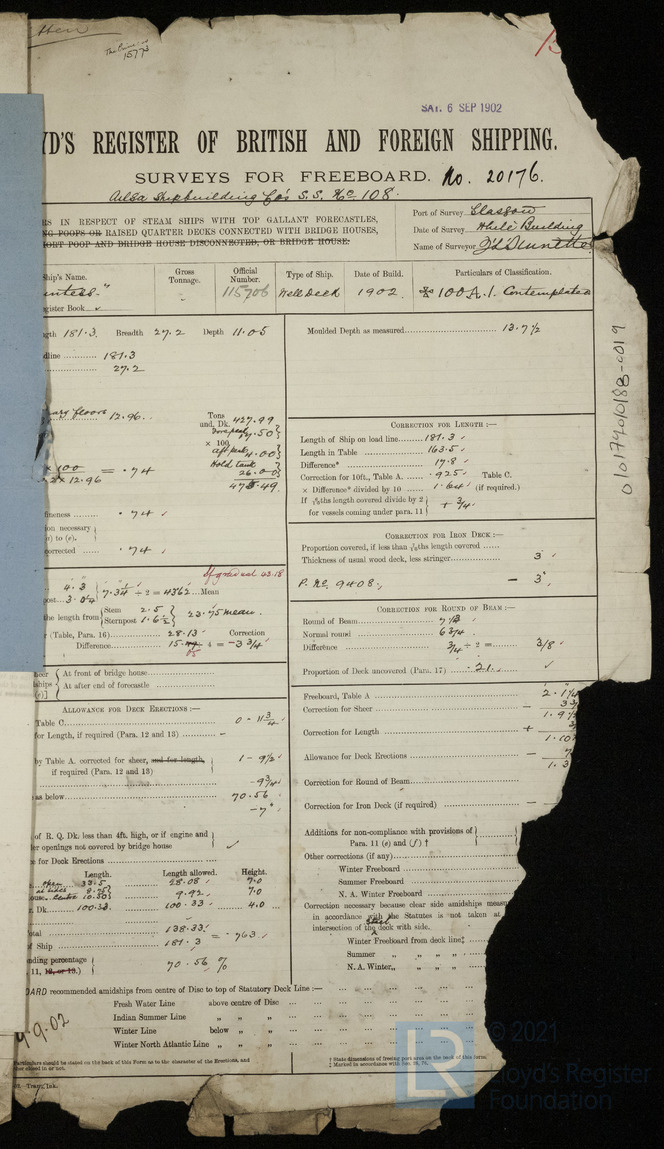 15773
SAT. 6 SEP 1902
YD'S REGISTER OF BRITISH AND FOREIGN SHIPPING.
SURVEYS FOR FREEBOARD. No. 20176.
Ailsa Shipbuilding Co's S.S. No 108.
RS IN RESPECT OF STEAM SHIPS WITH TOP GALLANT FORECASTLES,
NG POOPS OR RAISED QUARTER DECKS CONNECTED WITH BRIDGE HOUSES,
HORT POOP AND BRIDGE HOUSE DISCONNECTED, OR BRIDGE HOUSE:
Port of Survey Glasgow
Date of Survey While Building
Name of Surveyor
Ship's Name. Gross Tonnage. Official Number. Type of Ship. Date of Build. Particulars of Classification.
115706 Well Deck 1902. 100 A.1. Contemplated
egister Book
gth 181.3. Breadth 27.2 Depth 11.05
dline 181.3
27.2
12.96.
Tons
und. Dk. 427.99
Fore peak 17.50
× 100
Aft peak 4.00
Hold tank 26.00
× 100
× 12.96 = .74
475.49.
fineness .74
ion necessary
) to (e).
orrected .74
If ground 43.18
4.3
post 3.04 7.34 ÷ 2 = 4362 Mean
the length from Stem 2.5
Sternpost 1.6½ 23.75 mean.
(Table, Para. 16) 28.13 Correction
Difference 15. 05 4 = -3¾
At front of bridge house
At after end of forecastle
ALLOWANCE FOR DECK ERECTIONS :—
Table C. 0 - 11¾
for Length, if required (Para. 12 and 13) —
by Table A. corrected for sheer, and for length,
if required (Para. 12 and 13) 1 - 9½
-9¾
as below 70.56
-7"
of R. Q. Dk. less than 4ft. high, or if engine and
er openings not covered by bridge house
e for Deck Erections
Length. Length allowed. Height.
33.5 28.08 7.0
at sides 8.25
centre 10.50 9.92 7.0
Dk. 100.33 100.33 4.0
otal 138.33
of Ship 181.3 = .763
nding percentage
11, 12, or 13.) 70.56 %
Moulded Depth as measured 13.7½
CORRECTION FOR LENGTH :—
Length of Ship on load line 181.3
Length in Table 163.5
Difference* 17.8
Correction for 10ft., Table A. .925 Table C.
× Difference* divided by 10 1.64 (if required.)
If 6/10ths length covered divide by 2
for vessels coming under para. 11 + ¾
CORRECTION FOR IRON DECK :—
Proportion covered, if less than 7/10ths length covered
Thickness of usual wood deck, less stringer 3"
P. No. 9408. — 3"
CORRECTION FOR ROUND OF BEAM :—
Round of Beam
Normal round 6¾
Difference ¾ ÷ 2 = 3/8
Proportion of Deck uncovered (Para. 17) .21.
Freeboard, Table A 2.1
Correction for Sheer — 3
1.9
Correction for Length + ¾
1.10
Allowance for Deck Erections — 7
1.3
Correction for Round of Beam
Correction for Iron Deck (if required)
Additions for non-compliance with provisions of
Para. 11 (e) and (f) †
Other corrections (if any)
Winter Freeboard
Summer Freeboard
N. A. Winter Freeboard
Correction necessary because clear side amidships measu
in accordance with the Statutes is not taken at
intersection of the steel deck with side.
Winter Freeboard from deck line‡
Summer „ „ „ „
N. A. Winter „ „ „ „
OARD recommended amidships from centre of Disc to top of Statutory Deck Line :—
Fresh Water Line above centre of Disc
Indian Summer Line „ „
Winter Line below „ „
Winter North Atlantic Line „ „
9.9.02
Particulars should be stated on the back of this Form as to the character of the Erections, and
† State dimensions of freeing port area on the back of this form.
‡ Marked in accordance with
Transfer Ink.
010174010188-0019
LR
© 2021
Lloyd's Register
Foundation